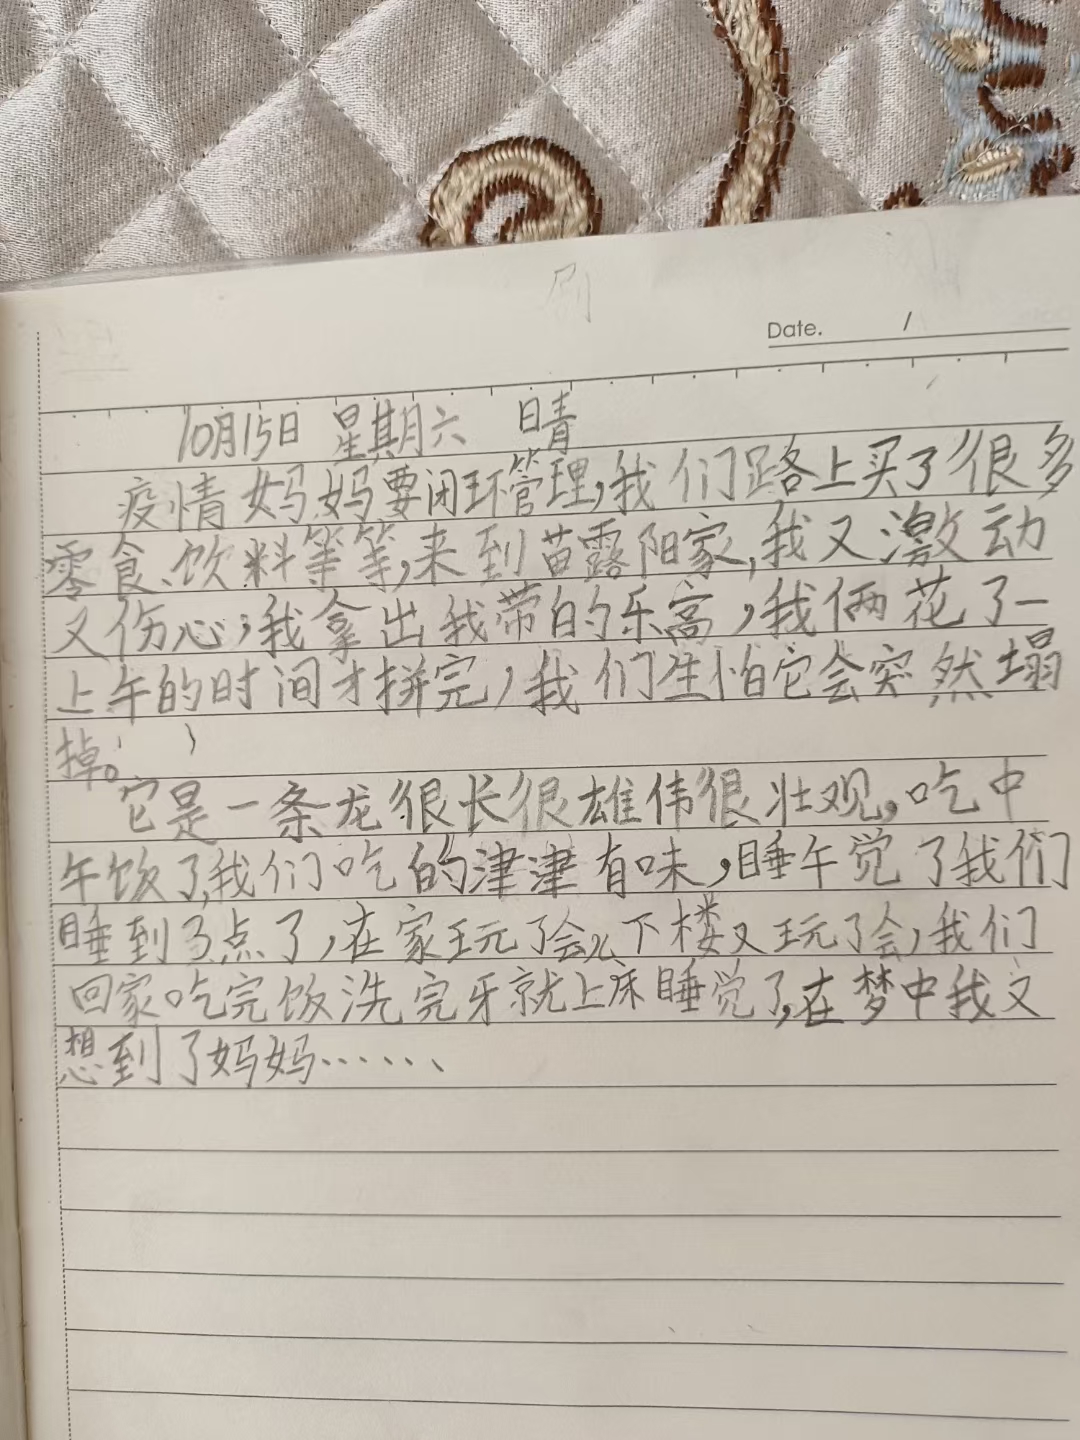 刷
Date. /
10月15日 星期六 晴
疫情妈妈要闭环管理,我们路上买了很多
零食、饮料等等,来到苗露阳家,我又激动
又伤心;我拿出我带的乐高,我俩花了一
上午的时间才拼完,我们生怕它会突然塌
掉。
它是一条龙很长很雄伟很壮观,吃中
午饭了,我们吃的津津有味,睡午觉了我们
睡到3点了,在家玩了会儿下楼又玩了会,我们
回家吃完饭洗完牙就上床睡觉了,在梦中我又
想到了妈妈……